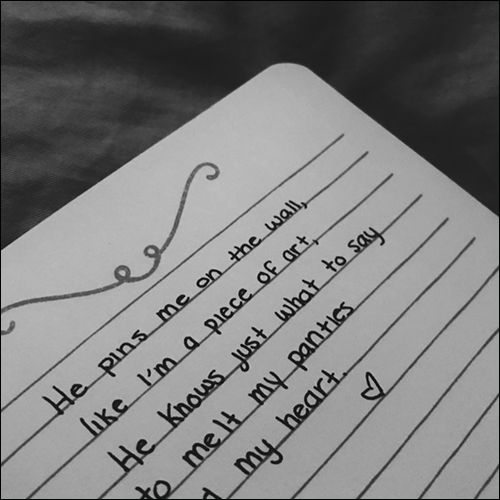 He pins me on the wall,
like I'm a piece of art,
He knows just what to say
to melt my panties
my heart.